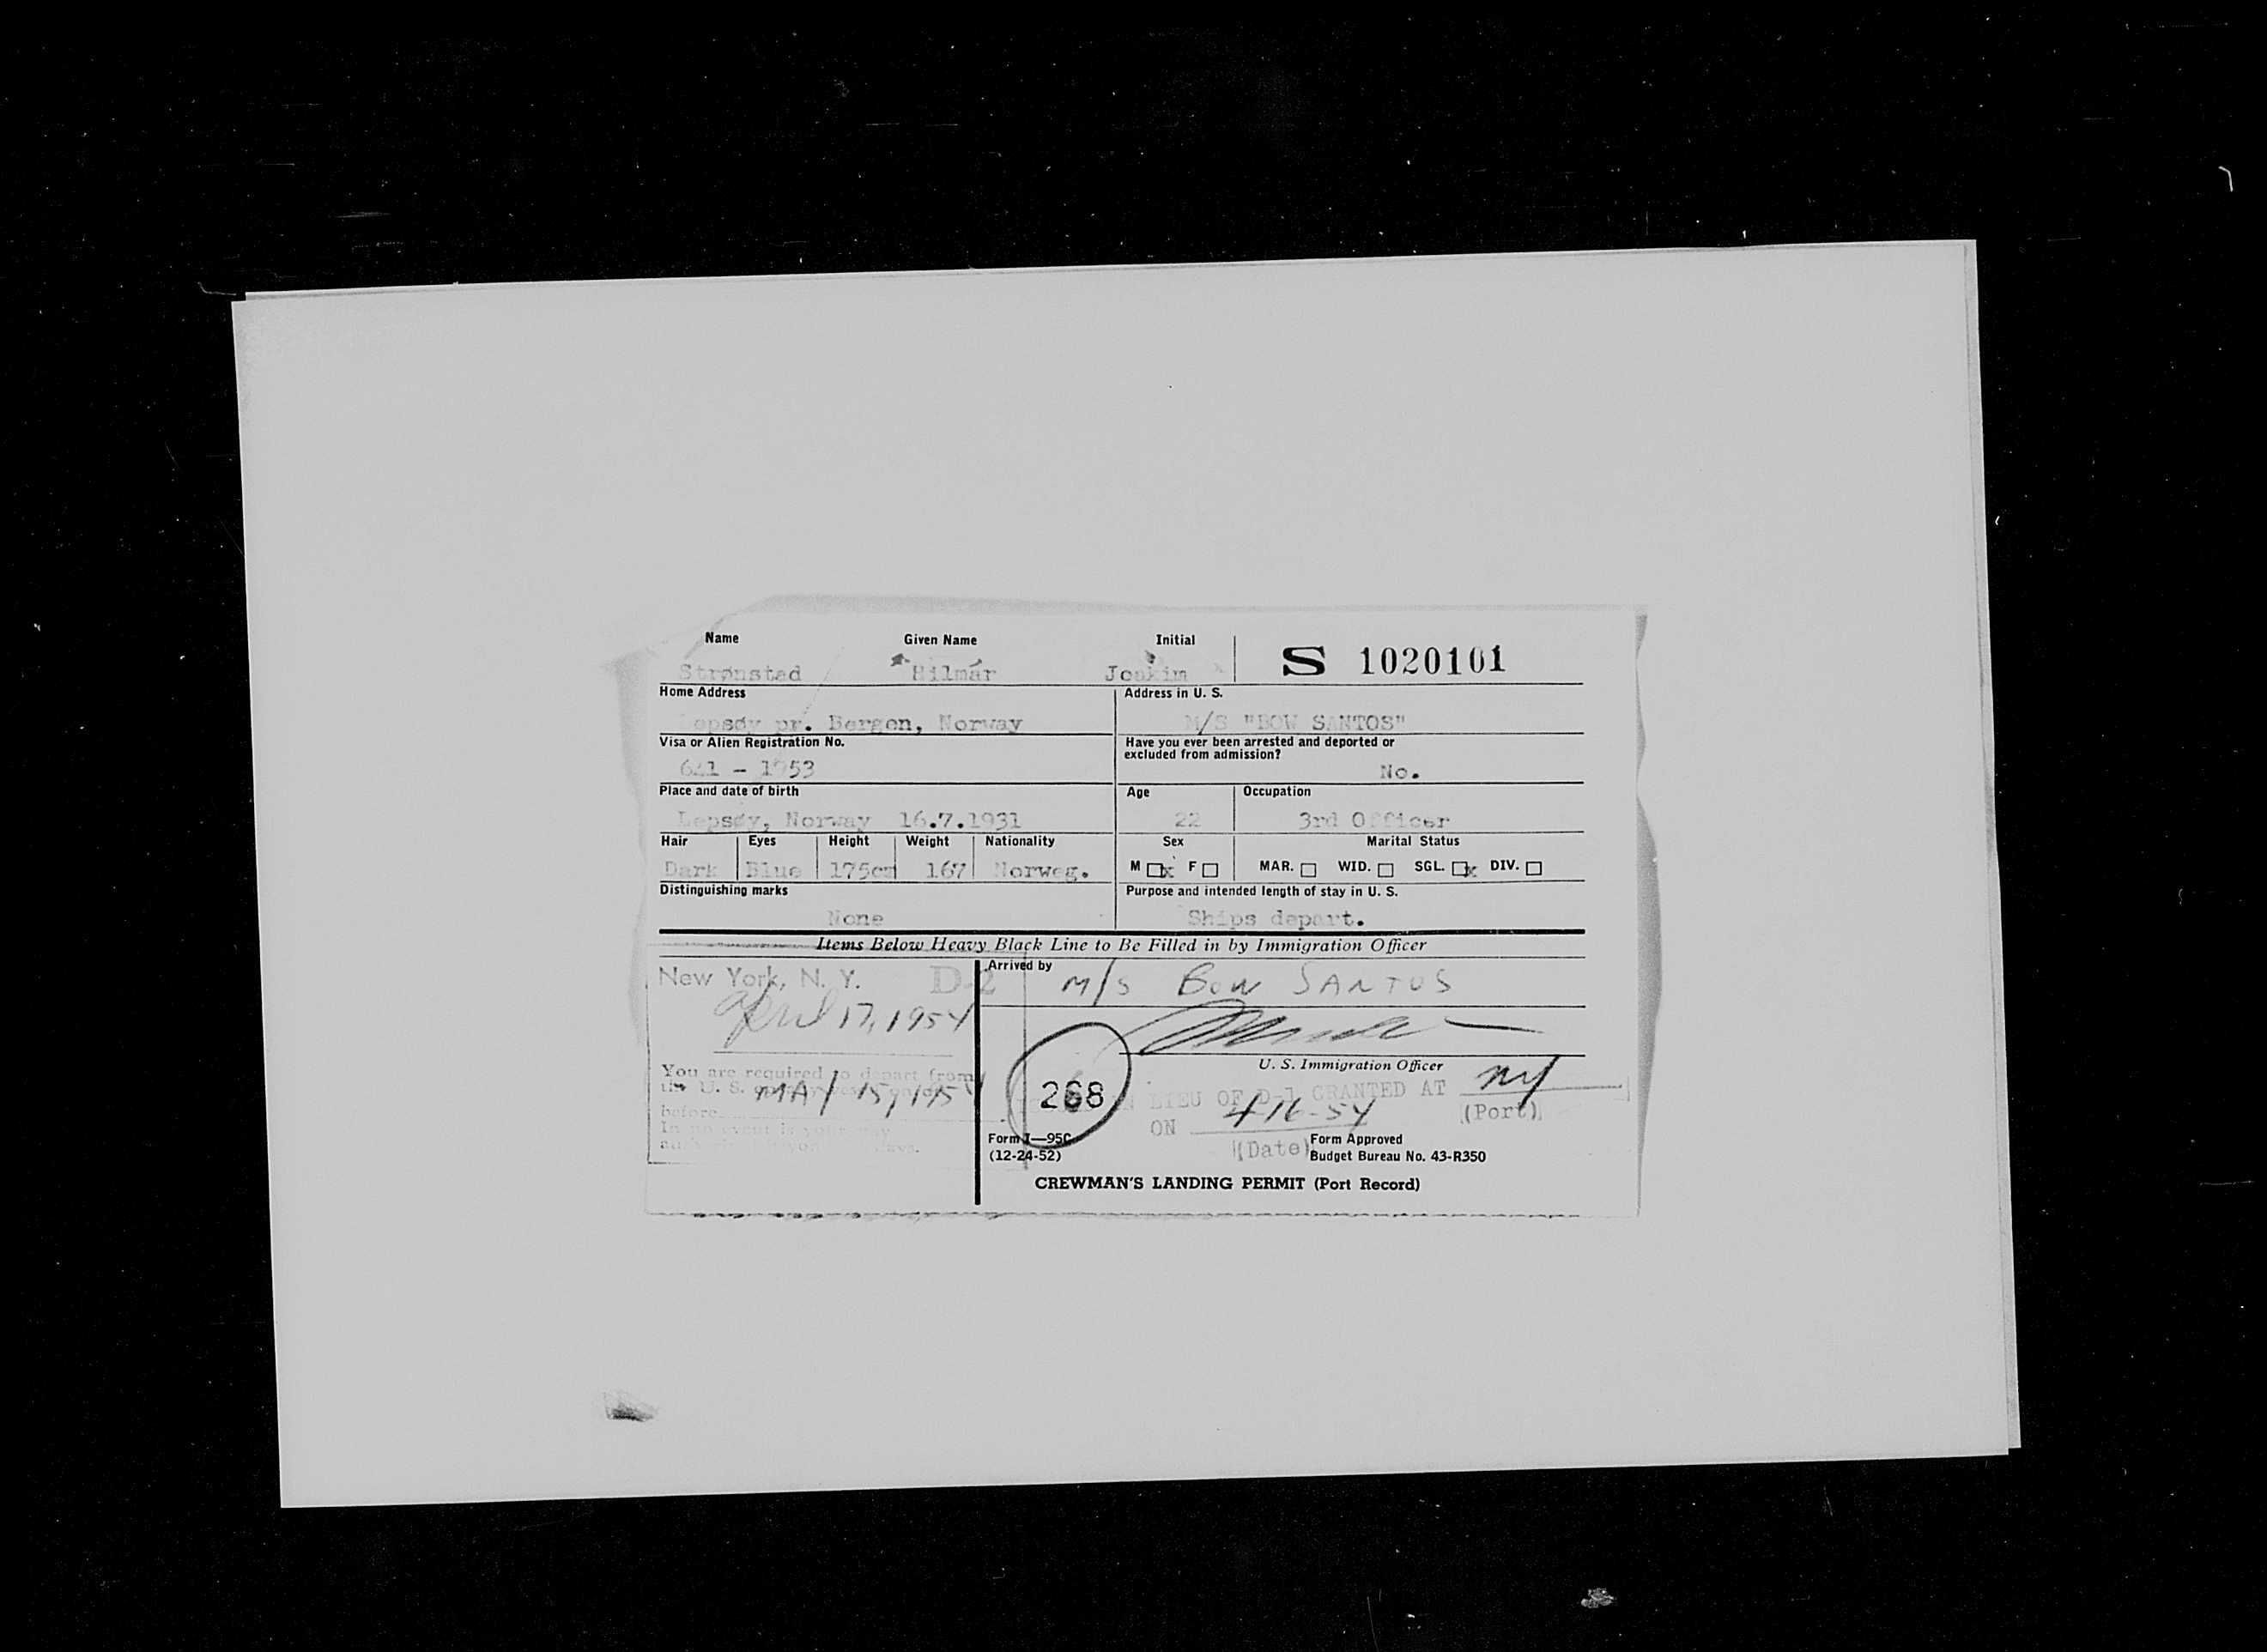 Name Given Name Initial
S 1020101
Strønsted Hilmar Joakim
Home Address Address in U. S.
Lepsøy pr. Bergen, Norway M/S "BOW SANTOS"
Visa or Alien Registration No. Have you ever been arrested and deported or
excluded from admission?
1953 No.
Place and date of birth Age Occupation
Lepsøy, Norway 16.7.1931 22 3rd Officer
Hair Eyes Height Weight Nationality Sex Marital Status
Dark Blue 175cm 167 Norweg. M x F MAR. WID. SGL. x DIV.
Distinguishing marks Purpose and intended length of stay in U. S.
None Ships depart.
Items Below Heavy Black Line to Be Filled in by Immigration Officer
New York, N. Y. D-2 Arrived by M/S BOW SANTOS
April 17, 1954
U. S. Immigration Officer
You are required to depart from
the U. S. on or
MAY 15, 1954
before
268
IN LIEU OF D-1 GRANTED AT NY
(Port)
ON 4-16-54
(Date)
Form I—95C Form Approved
(12-24-52) Budget Bureau No. 43-R350
CREWMAN'S LANDING PERMIT (Port Record)